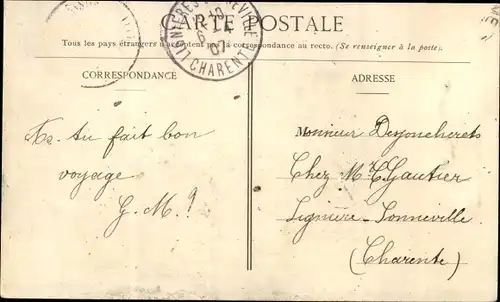 CARTE POSTALE
Tous les pays étrangers n'acceptent pas la correspondance au recto. (Se renseigner à la poste).
CORRESPONDANCE
As tu fait bon
voyage
G. M. ?
ADRESSE
Monsieur Desjoncherets
Chez Mr. Gautier
Lignière-Sonneville
(Charente)
LIGNIÈRES SONNEVILLE
6
07
CHARENTE